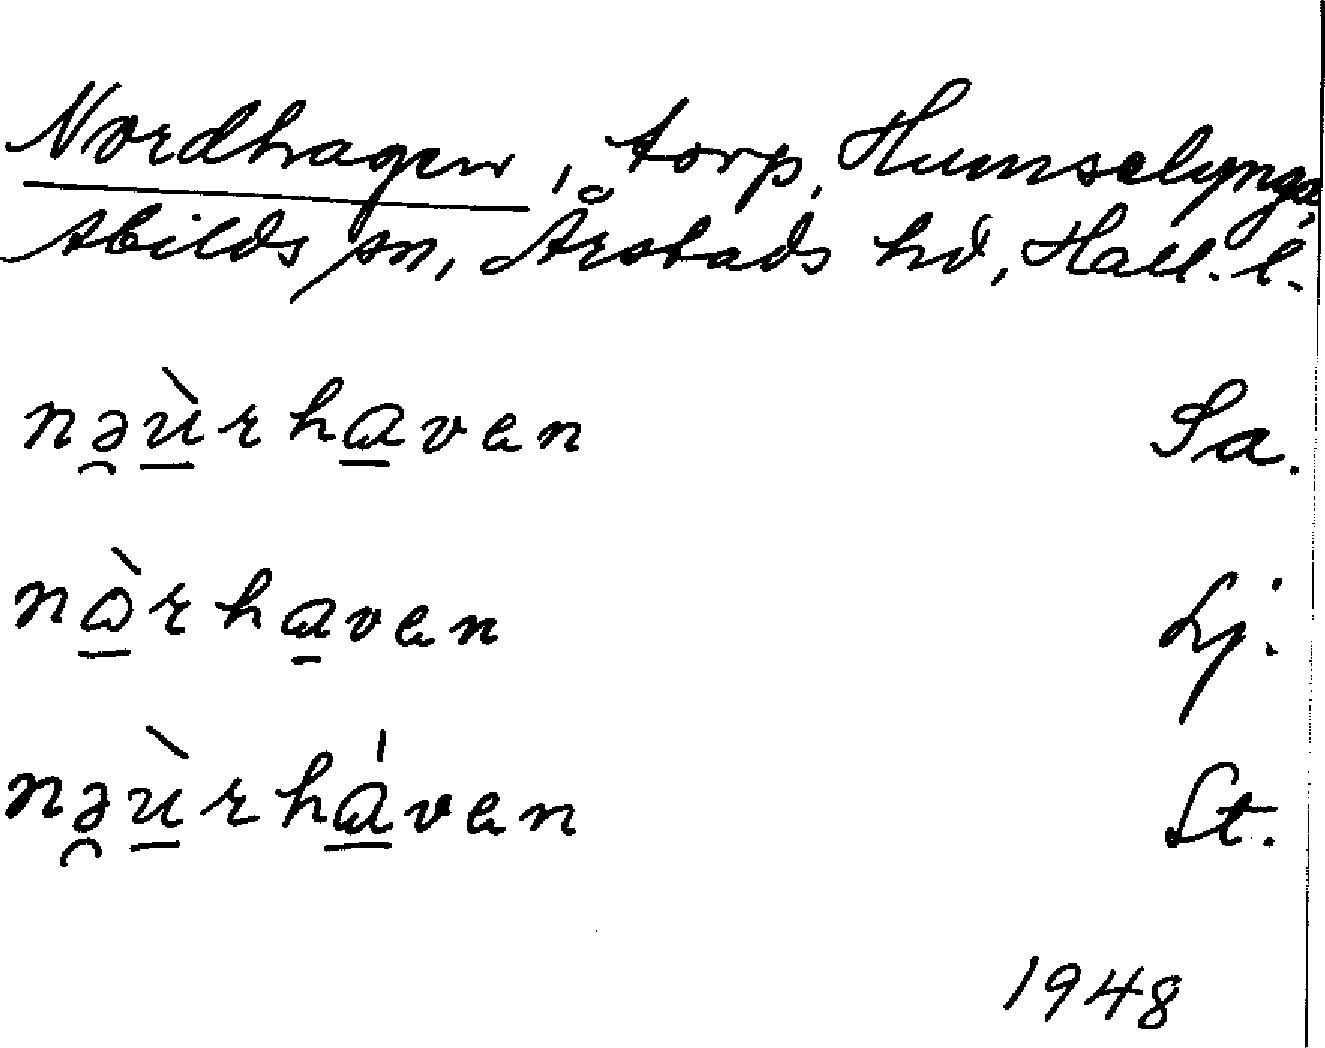 Nordhagen, torp, Humselynga,
Abilds sn, Årstads hd, Hall. l.
nə̯ùrhaven Sa.
nàrhaven Lj.
nə̯ùrháven St.
1948